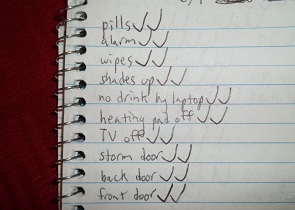 pills ✓✓
alarm ✓✓
wipes ✓✓
shades up ✓✓
no drink by laptop ✓✓
heating pad off ✓✓
TV off ✓✓
storm door ✓✓
back door ✓✓
front door ✓✓